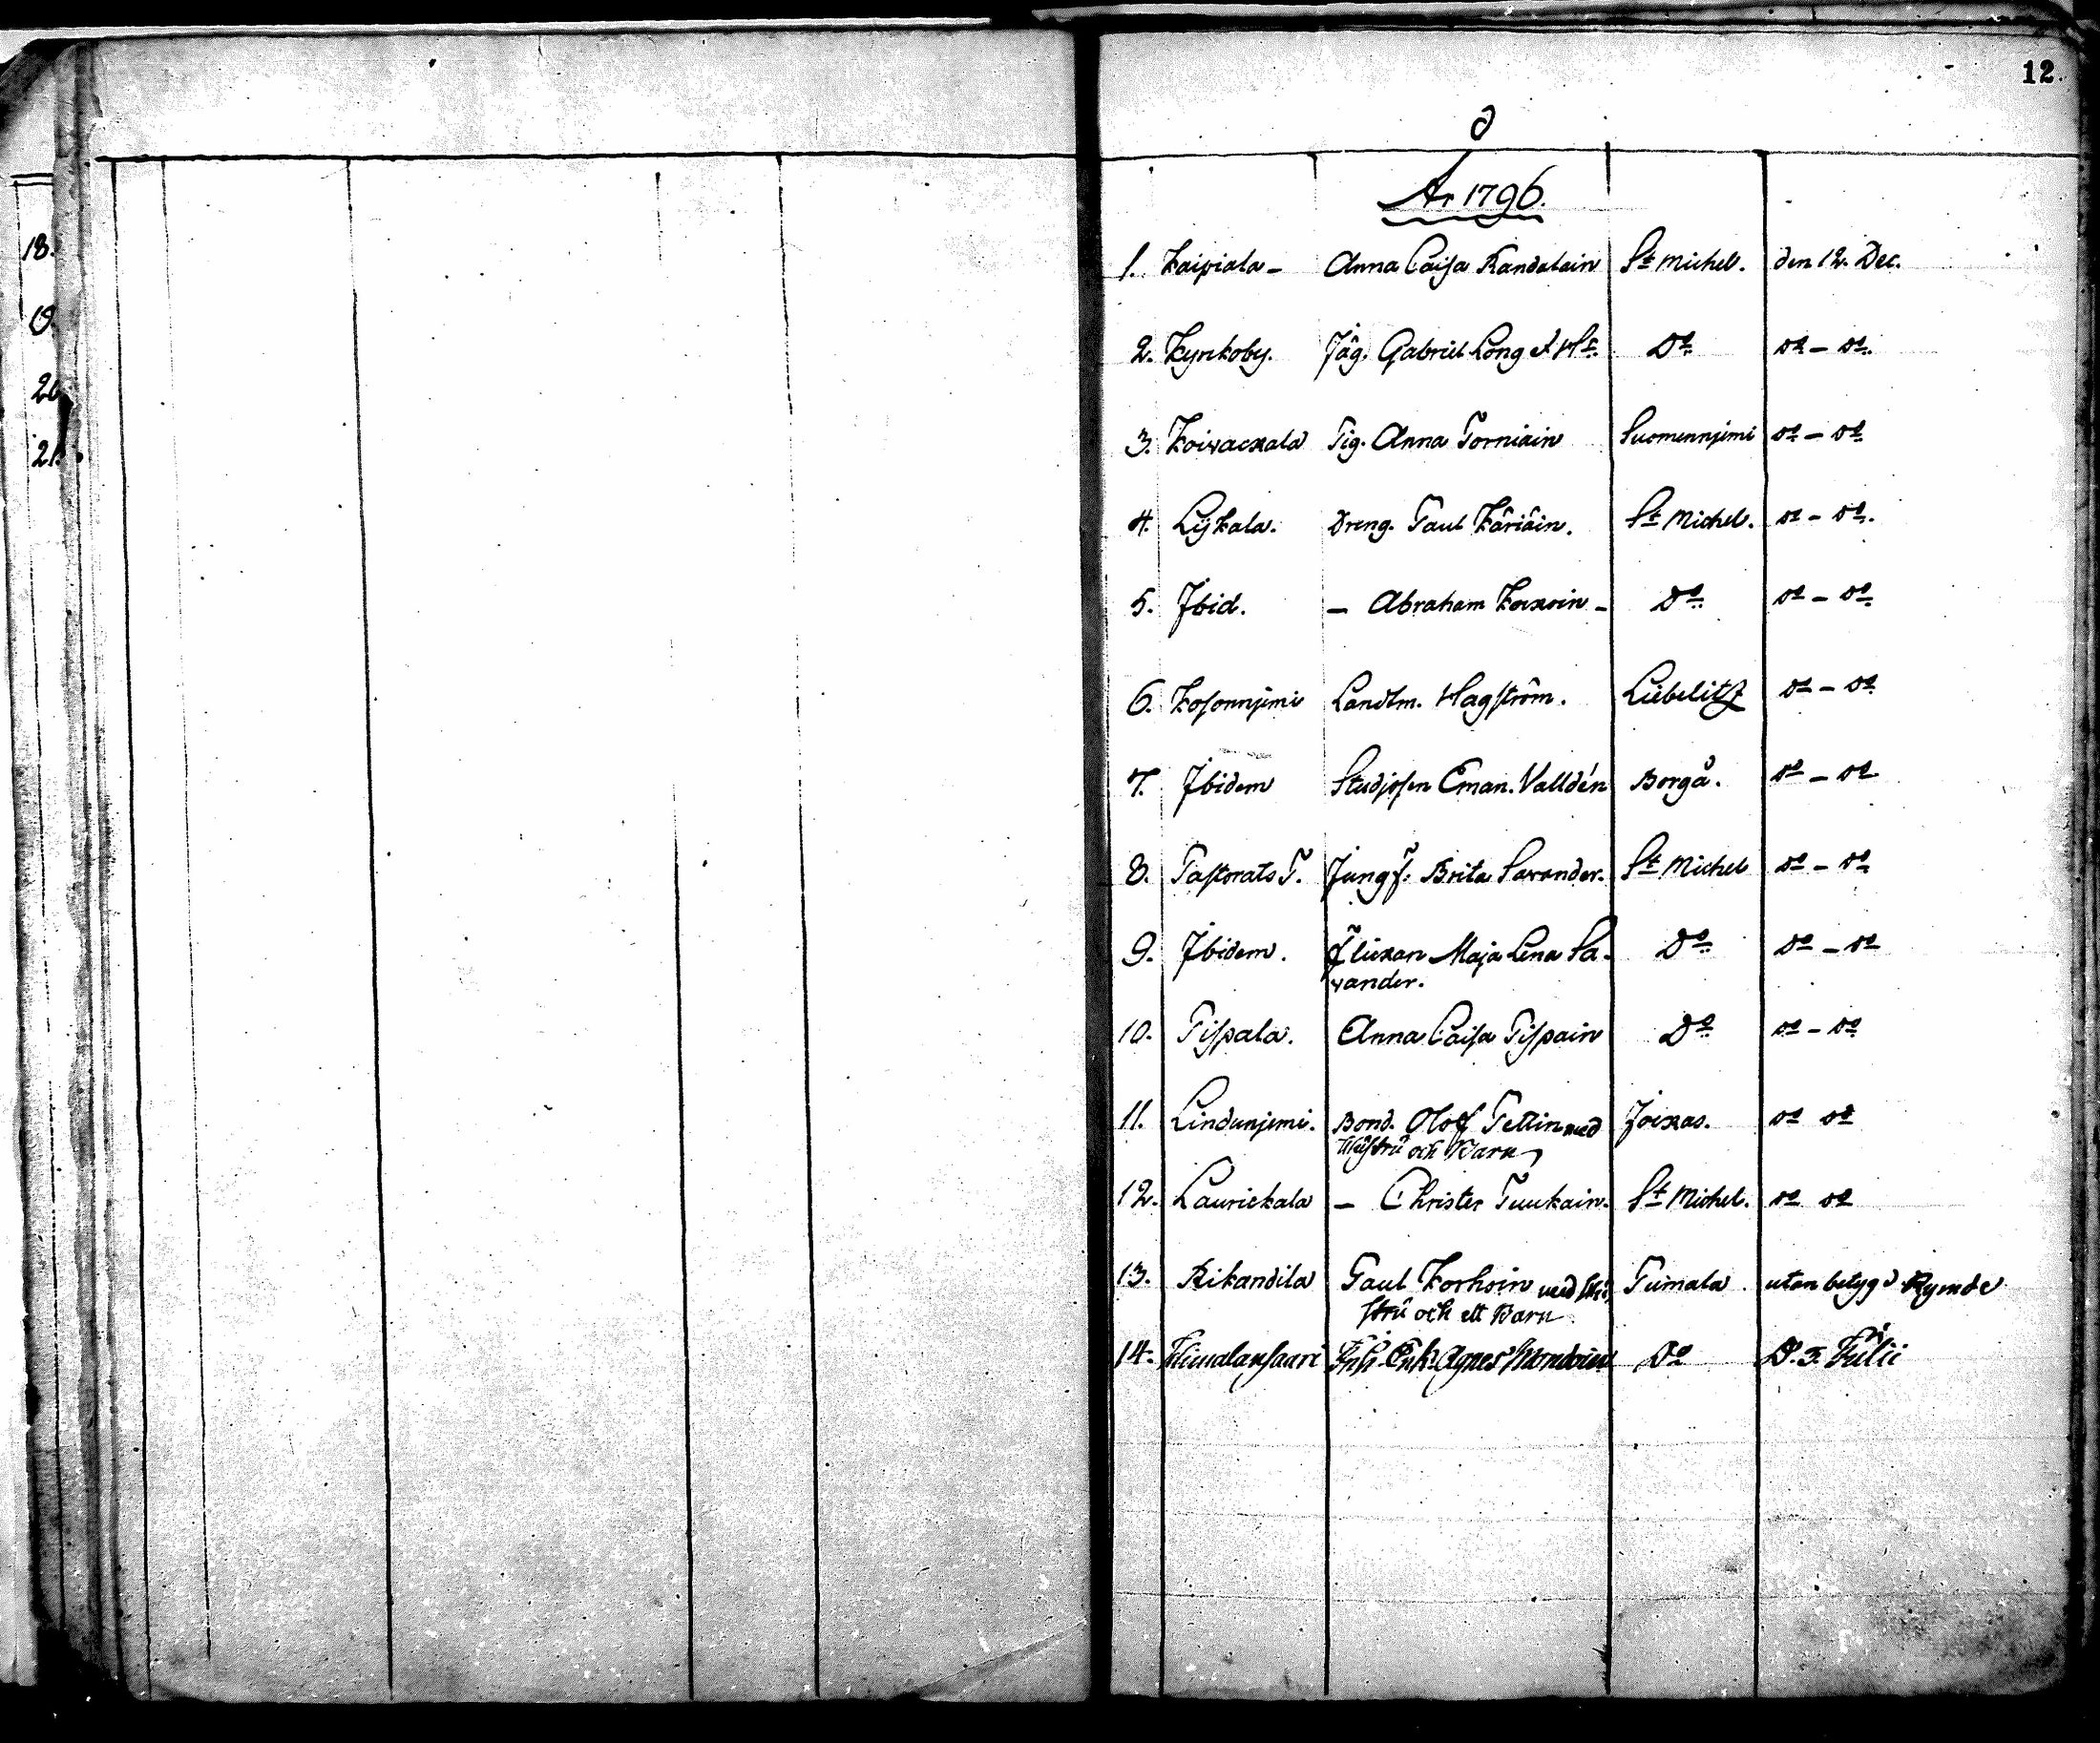 12.
∂
18.
19.
20
21.
A: 1796.
1. Kaipiala – Anna Caisa Randalain St Michel. den 12. Dec.
2. Kyrkoby. Jäg. Gabriel Long et Hs. Do Do – Do.
3. Koivackala Pig. Anna Torniain Suomennjemi Do – Do
4. Lÿkala. Dreng. Paul Käriäin. St Michel. Do – Do.
5. Jbid. – Abraham Koxoin – Do Do – Do
6. Kosonnjemi Landtm. Hagström. Liebelitz Do – Do
7. Jbidem Studjosen Eman. Valldén Borgå. Do – Do
8. Pastorats T. Jungf. Brita Savander. St Michel Do – Do
9. Jbidem. Flickan Maja Lena Sa-
vander. Do Do – Do
10. Pispala. Anna Caisa Pispain Do Do – Do
11. Lindunjemi. Bond. Olof Pettin med
Hustru och Barn Jockas. Do Do
12. Laurickala – Christer Puukain. St Michel. Do Do
13. Rikandila Paul Korhoin med Hu
stru och ett Barn Pumala utan betyg d Rymde
14. Himalansaari Enk. Agnes Do D. 3. Julii